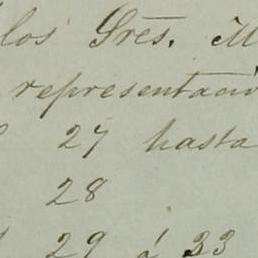 los Sres. M
representació
27 hasta
28
29 á 33